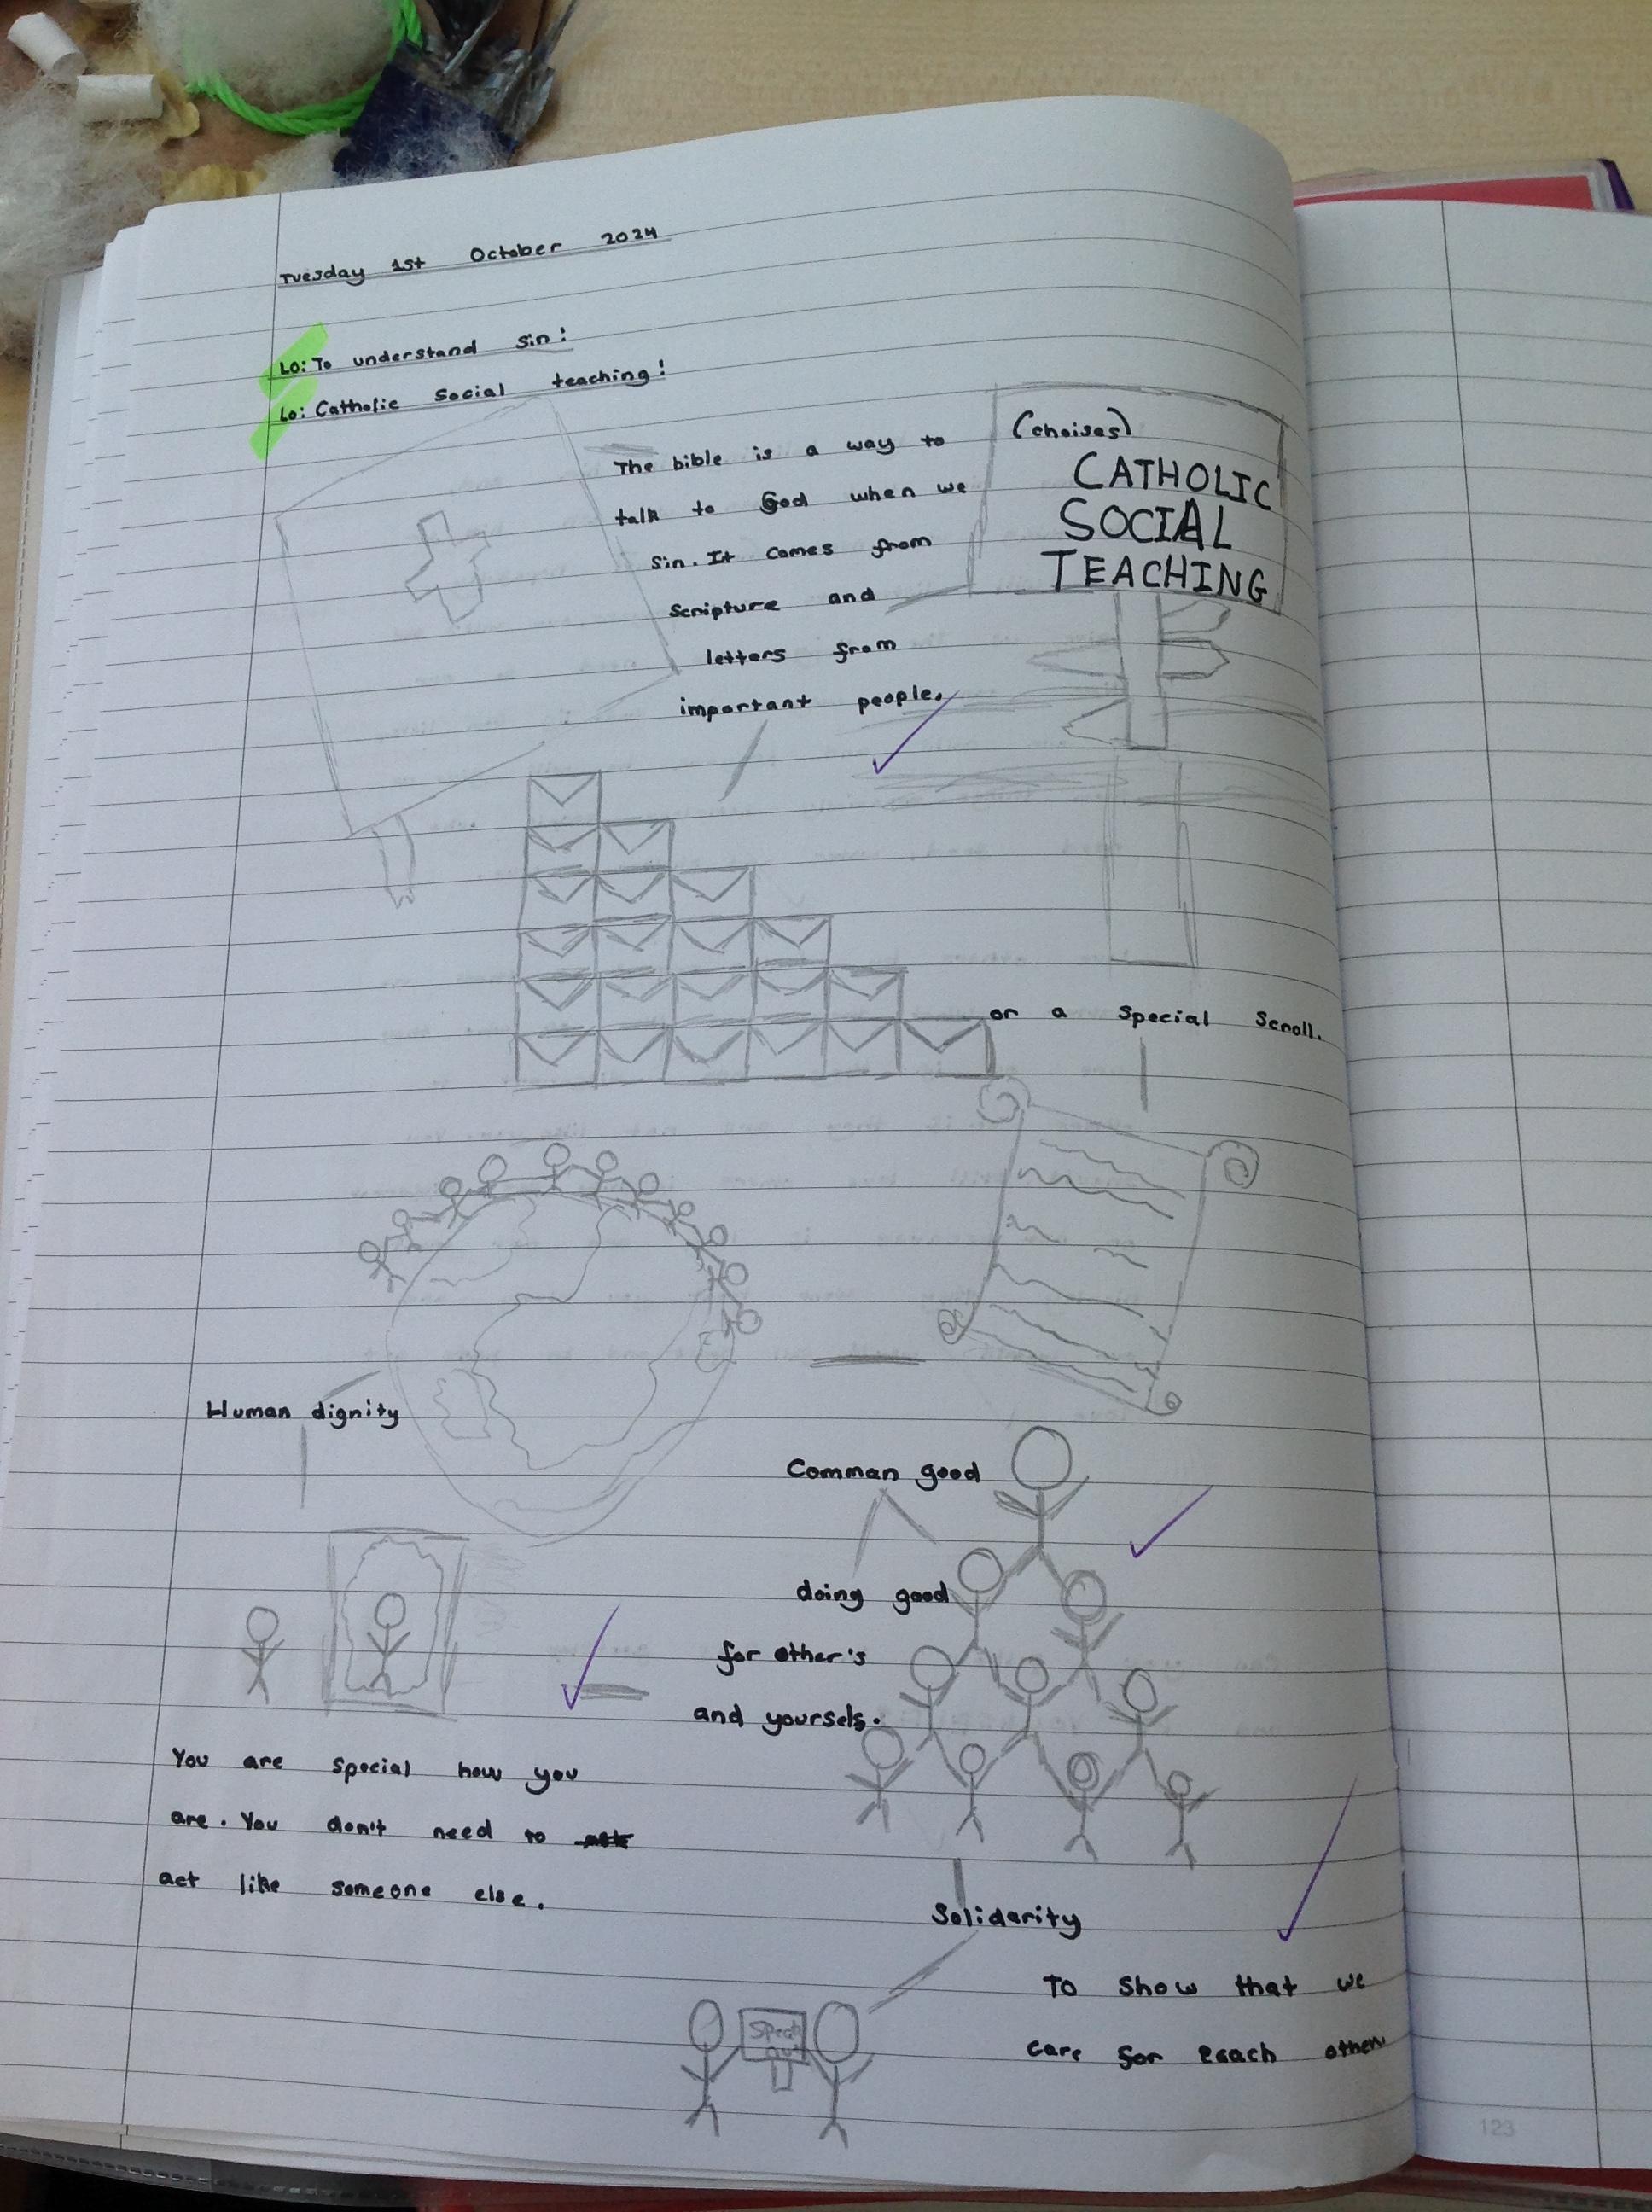 Tuesday 1st October 2024
LO: To understand sin!
Lo: Catholic Social teaching!
The bible is a way to
talk to God when we
Sin. It comes from
Scripture and
letters from
important people.
(choises)
CATHOLIC
SOCIAL
TEACHING
or a special scroll.
Human dignity
Comman good
doing good
for other's
and yourself.
You are special how you
are. You don't need to
act like someone else.
Solidarity
To show that we
care for eeach other.
Speak
out
123